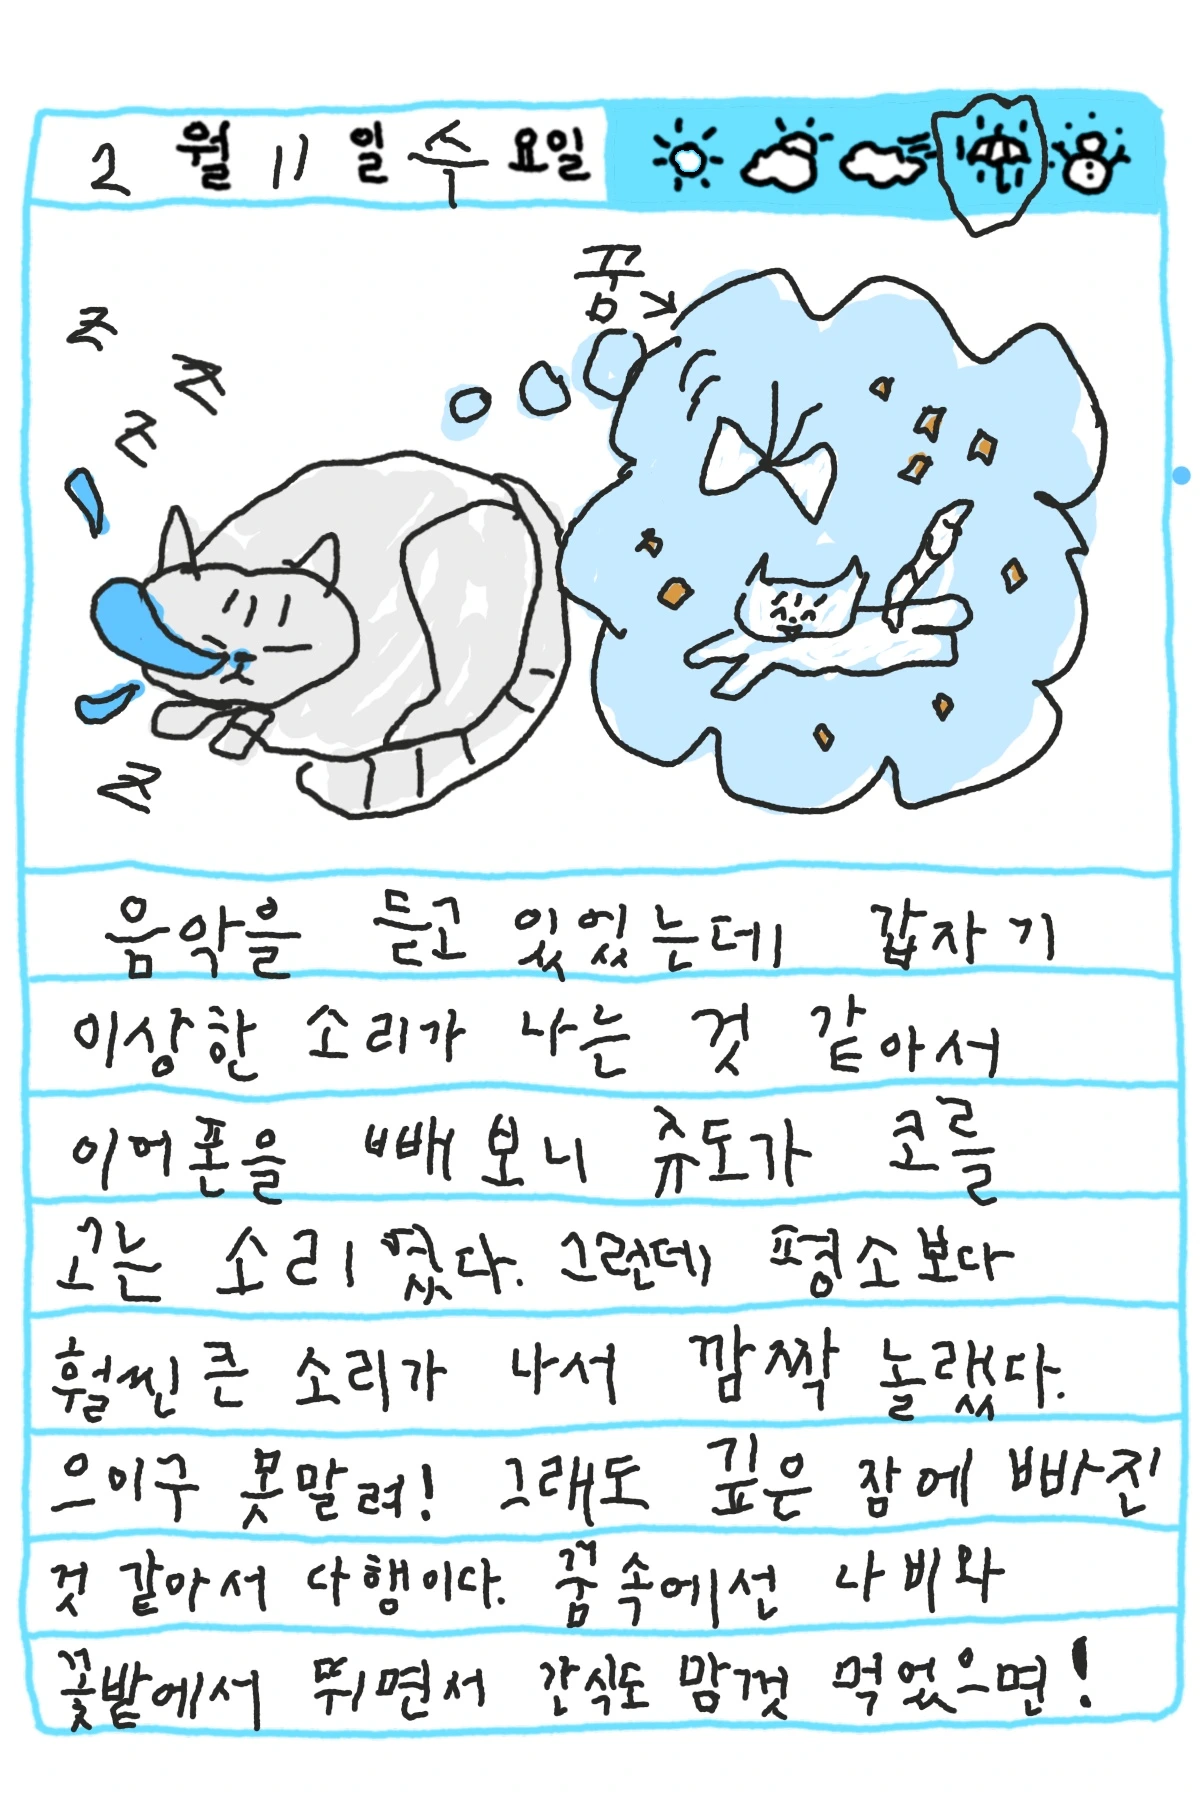 2 월 11 일 수 요일
꿈
Z
Z
Z
음악을 듣고 있었는데 갑자기
이상한 소리가 나는 것 같아서
이어폰을 빼보니 쥬도가 코를
고는 소리였다. 그런데 평소보다
훨씬 큰 소리가 나서 깜짝 놀랬다.
으이구 못말려! 그래도 깊은 잠에 빠진
것 같아서 다행이다. 꿈속에선 나비와
꽃밭에서 뛰면서 간식도 맘껏 먹었으면!